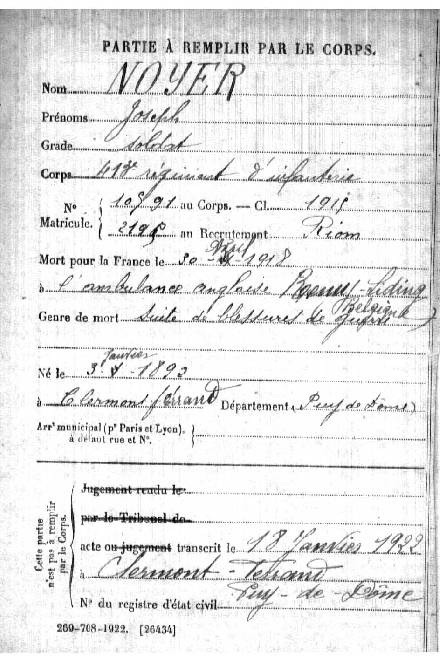 PARTIE À REMPLIR PAR LE CORPS.
Nom NOYER
Prénoms Joseph
Grade soldat
Corps 413e régiment d'infanterie
N° 10591 au Corps. — Cl. 1915
Matricule. 2195 au Recrutement Riom
Mort pour la France le 30 avril 1918
à l'ambulance anglaise Siding
Belgique
Genre de mort suite de blessures de guerre
janvier
Né le 3 1893
à Clermont-Ferrand Département Puy de Dôme
Arrt municipal (pr Paris et Lyon),
à défaut rue et N°.
Cette partie
n'est pas à remplir
par le Corps.
Jugement rendu le
par le Tribunal de
acte ou jugement transcrit le 18 Janvier 1922
à Clermont-Ferrand
Puy-de-Dôme
N° du registre d'état civil
269-708-1922. [26434]